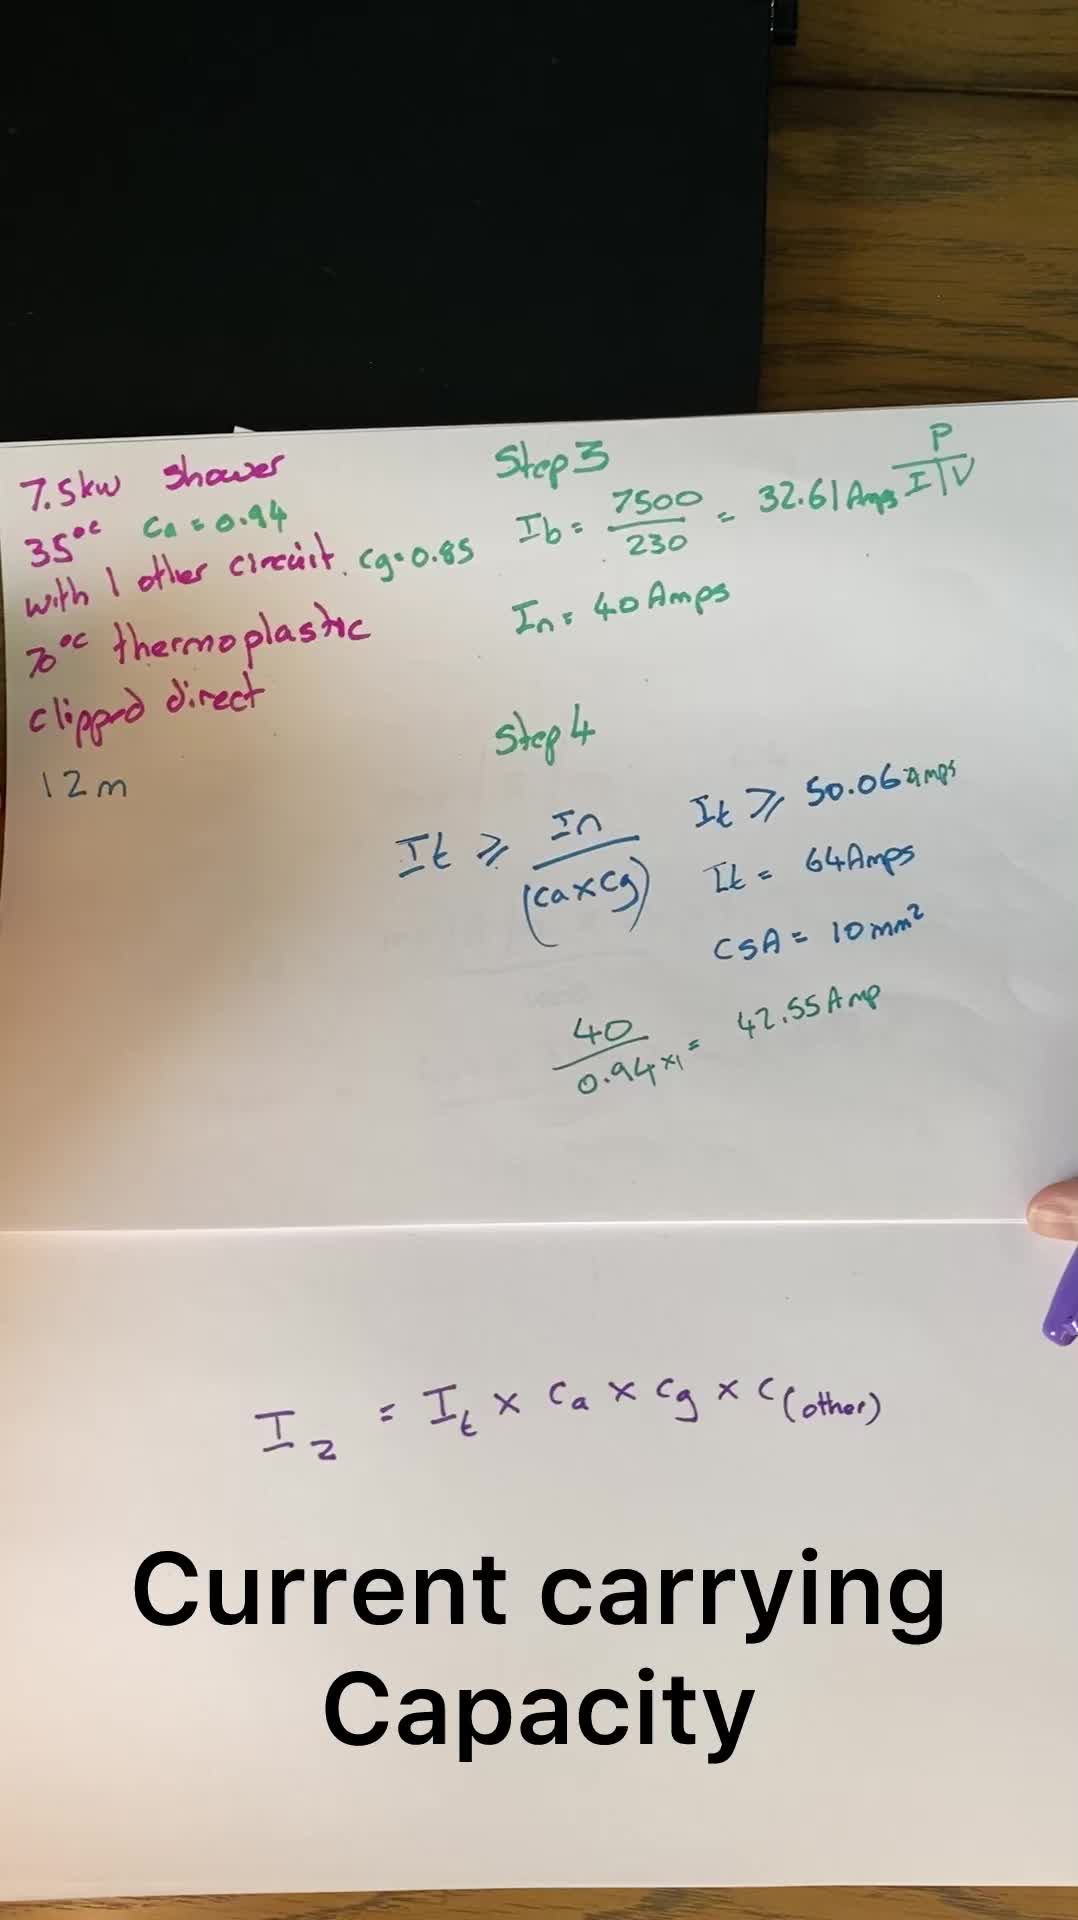 7.5kw shower
35°c Ca = 0.94
with 1 other circuit. Cg=0.85
70°c thermoplastic
clipped direct
12m
Step 3
P
I V
Ib = 7500/230 = 32.61 Amps
In = 40 Amps
Step 4
It ≥ In/(Ca x Cg)
It ≥ 50.06 Amps
It = 64 Amps
CSA = 10mm²
40/0.94 x 1 = 42.55 Amp
Iz = It x Ca x Cg x C(other)
Current carrying
Capacity